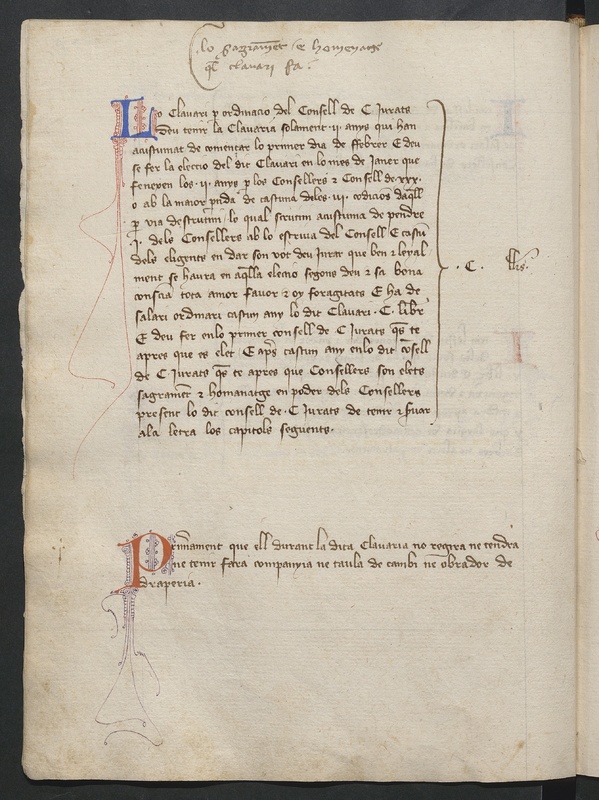 lo sagrament e homenatge
q̃l clavari fa.
Lo Clavari p ordinacio del Consell de C Jurats
Deu tenir la Clavaria solament .ii. anys qui han
acustumat de comencar lo primer dia de ffebrer E deu
se fer la eleccio del dit Clavari en lo mes de Janer que
feneyen los .ii. anys p los Consellers ⁊ Consell de xxx.
o ab la maior ptida de cascuna deles .iii. codicios daq̃ll
p via descrutini lo qual scrutini acustuma de pendre
.J. dels Consellers ab lo escriva del Consell E cascũ
dels eligents en dar son vot deu Jurar que ben ⁊ leyal
ment se haura en aq̃lla eleccio segons deu ⁊ sa bona
consciã tota amor favor ⁊ oy foragitats E ha de
salari ordinari cascun any lo dit Clavari .C. libr̃
E deu fer enlo primer consell de C Jurats q̃s te
apres que es elet E ap̃s cascun any enlo dit cõsell
de C Jurats q̃s te apres que Consellers son elets
sagramẽt ⁊ homanatge en poder dels Consellers
present lo dit consell de .C Jurats de tenir ⁊ s̃var
ala letra los capitols seguents.
.C. ll̃s.
Primament que ell durant la dita Clavaria no regira ne tendra
ne tenir fara companyia ne taula de cambi ne obrador de
draperia.